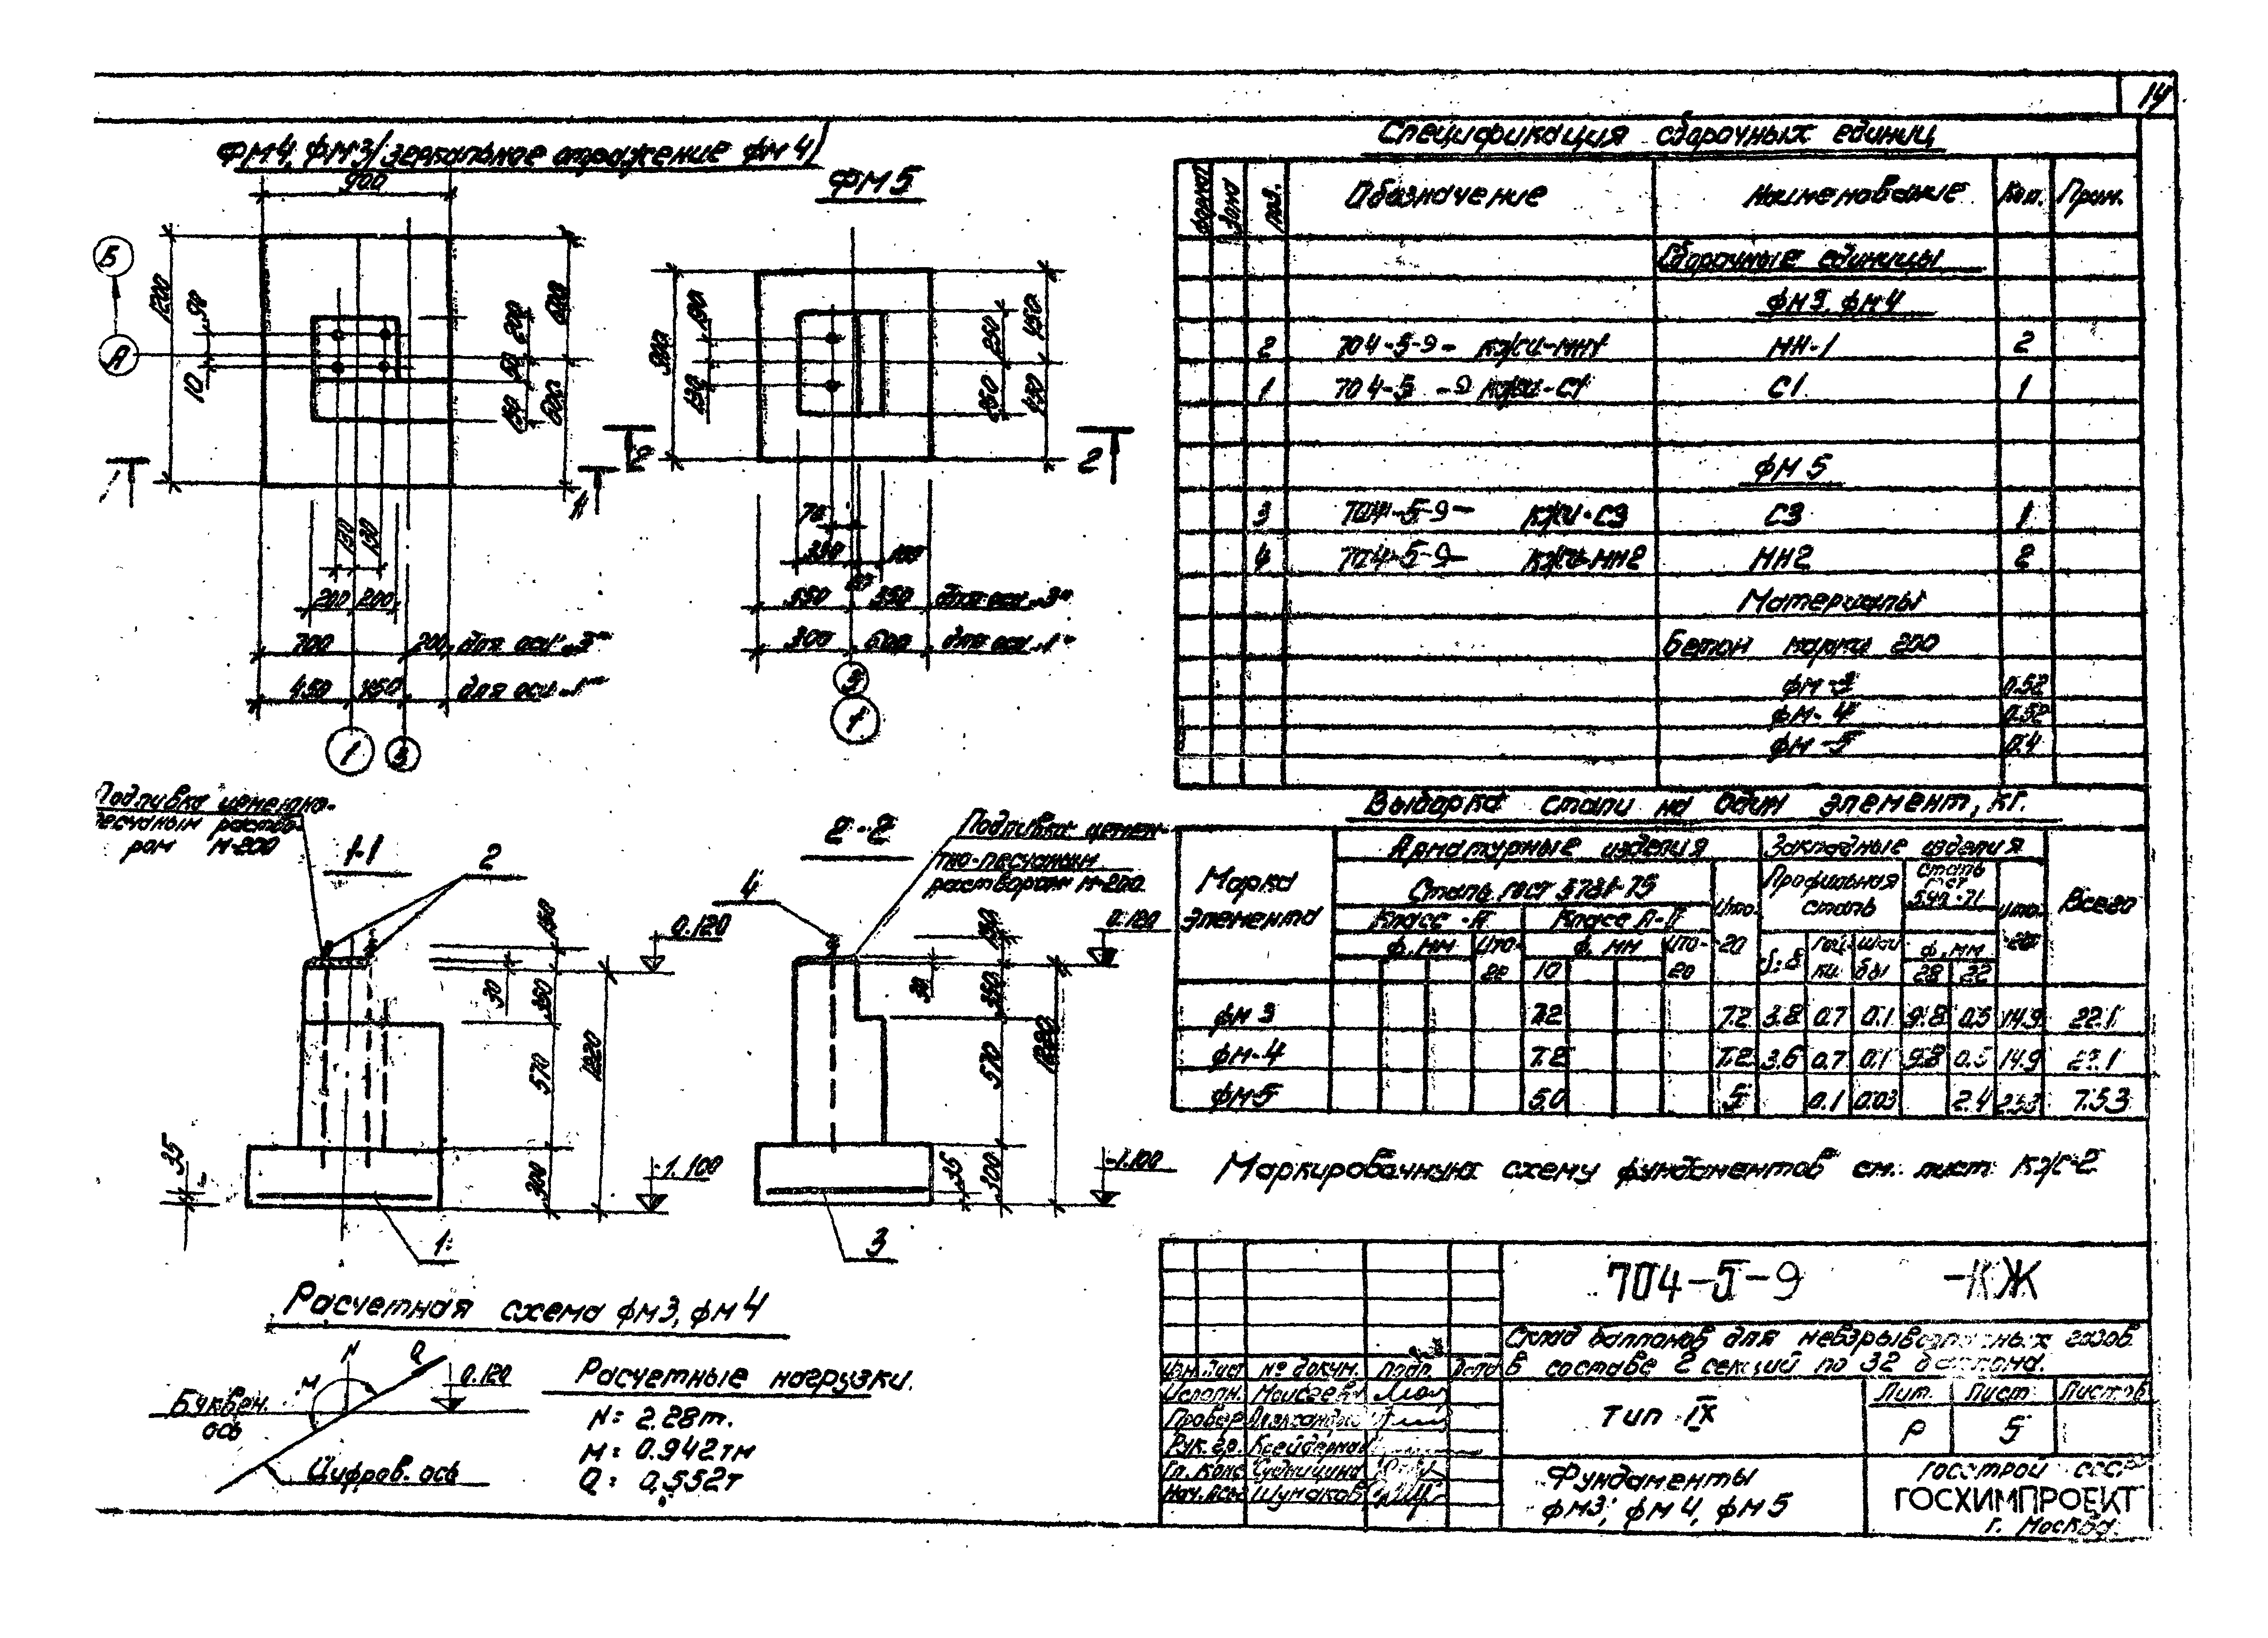 14
ФМ4, ФМ3 /зеркальное отражение ФМ4/
900
Б
А
1200
90
10
200
50
150
600
600
1
1
130 130
200 200
700 200 для оси „3"
450 450 для оси „1"
1 3
ФМ5
900
130
130
250
250
450
450
2
2
70
350 100
550 350 для оси „3"
300 600 для оси „1"
3
1
Подливка цементно-
песчаным раство-
ром М-200
1-1
2
150
0.120
30
350
570
1220
300
35
-1.100
1
2-2
Подливка цемен-
тно-песчаным
раствором М-200
4
150
0.120
30
350
570
1220
300
35
-1.100
3
Расчетная схема фм3, фм4
N
Q
M
0.120
Буквен.
ось
Цифров. ось
Расчетные нагрузки.
N= 2.28т.
M= 0.942тм
Q= 0.552т
Спецификация сборочных единиц
Формат Зона Поз. Обозначение Наименование Кол. Прим.
Сборочные единицы
ФМ3, ФМ4
2 704-5-9- КЖИ-МН1 МН-1 2
1 704-5-9 КЖИ-С1 С1 1
ФМ5
3 704-5-9- КЖИ-С3 С3 1
4 704-5-9- КЖИ-МН2 МН2 2
Материалы
Бетон марки 200
ФМ-3 0.52
ФМ-4 0.52
ФМ-5 0.4
Выборка стали на один элемент, кг.
Марка элемента
Арматурные изделия Закладные изделия Всего
Сталь ГОСТ 5781-75 Итого Профильная сталь Сталь ГОСТ Итого
Класс А- Класс А-II
ф, мм Итого ф, мм Итого гайки шайбы ф, мм
10 28 22
фм 3 7.2 7.2 3.8 0.7 0.1 9.8 0.5 14.9 22.1
фм-4 7.2 7.2 3.6 0.7 0.1 9.8 0.5 14.9 22.1
фм-5 5.0 5 0.1 0.03 2.4 2.53 7.53
Маркировочную схему фундаментов см. лист КЖ-2
704-5-9 -КЖ
Склад баллонов для невзрывоопасных газов
в составе 2 секций по 32 баллона.
Изм. Лист № докум. Подп. Дата
Исполн. Моисеева
Провер. Александров
Рук. гр.
Гл. конс. Судницина
Нач. Шумаков
Тип IX
Лит. Лист Листов
Р 5
Фундаменты
ФМ3; ФМ4, ФМ5
Госстрой СССР
ГОСХИМПРОЕКТ
г. Москва.